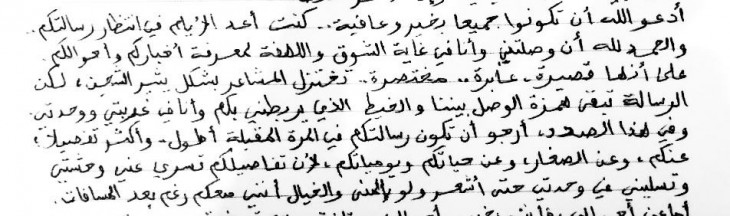 أدعو الله أن تكونوا جميعا بخير وعافية.. كنت أعد الأيام في انتظار رسالتكم..
والحمد لله أن وصلتني وأنا في غاية الشوق واللهفة لمعرفة أخباركم وأحوالكم.
على أنها قصيرة.. عابرة.. مختصرة.. تختزل المشاعر بشكل يثير الشجن، لكن
الرسالة تبقى همزة الوصل بيننا والخيط الذي يربطني بكم وأنا في غربتي ووحدتي
وفي هذا الصدد، أرجو أن تكون رسالتكم في المرة المقبلة أطول.. وأكثر تفصيلا
عنكم، وعن الصغار، وعن حياتكم ويومياتكم، لأن تفاصيلكم تسري عني وحشتي
وتسليني في وحدتي حتى أشعر ولو بالمنى والخيال أنني معكم رغم بعد المسافات.